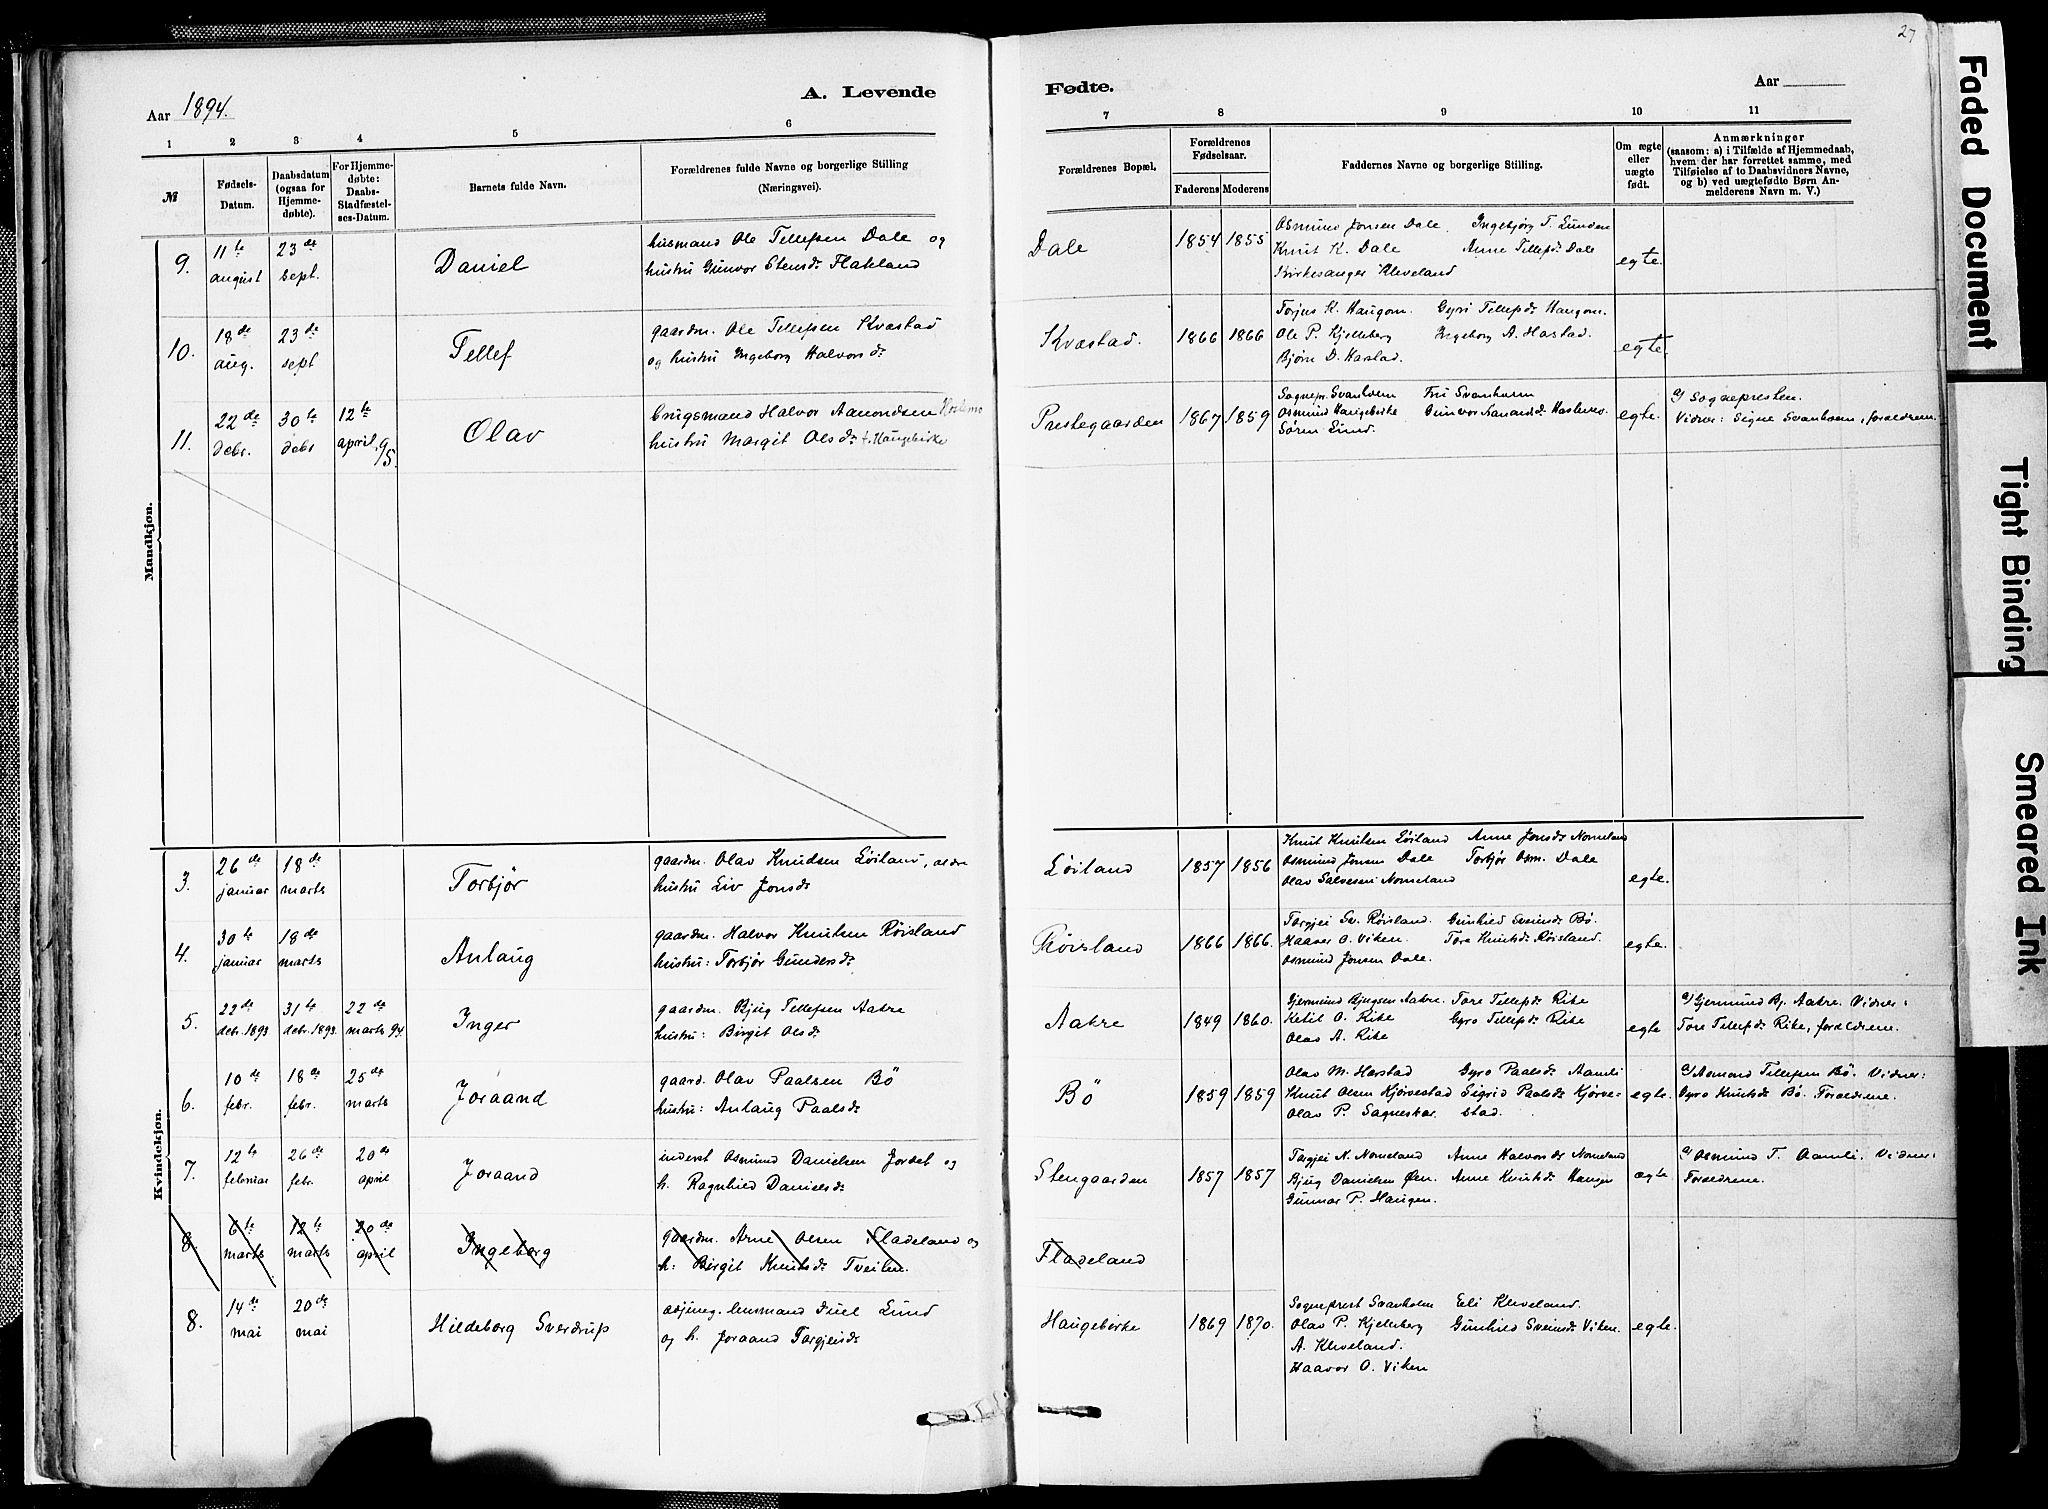 27
Aar 1894.
A. Levende
Fødte.
Aar
1 2 3 4 5 6 7 8 9 10 11
№
Fødsels-Datum.
Daabsdatum (ogsaa for Hjemme-døbte).
For Hjemme-døbte: Daabs-Stadfæstel-ses-Datum.
Barnets fulde Navn.
Forældrenes fulde Navne og borgerlige Stilling
(Næringsvei).
Forældrenes Bopæl.
Forældrenes Fødselsaar.
Faderens Moderens
Faddernes Navne og borgerlige Stilling.
Om ægte eller uægte født.
Anmærkninger
(saasom: a) i Tilfælde af Hjemmedaab,
hvem der har forrettet samme, med
Tilføielse af to Daabsvidners Navne,
og b) ved uægtefødte Børn An-
melderens Navn m. V.)
Mandkjøn.
9. 11te august 23de sept. Daniel
husmand Ole Tellefsen Dale og
hustru Gunvor Stensdr Flakland
Dale 1854 1855
Osmund Jonsen Dale Ingebjørg T. Lunden
Knut K. Dale Anne Tellefsdr Dale
Kirkesanger Kleveland
egte.
10. 18de aug. 23de sept Tellef
gaardm. Ole Tellefsen Kvæstad
og hustru Ingeborg Halvorsdr
Kvæstad. 1866 1866
Torjus K. Haugom. Gyri Tellefsdr Haugom.
Ole P. Kjelleberg Ingeborg A. Harstad.
Bjørn D. Harstad.
egte.
11. 22de debr. 30te debr 12te april 95. Olav
brugsmand Halvor Aamondsen
hustru Margit Olsdr f. Haugebirke
Prestegaarden 1867 1859
Sognepr. Svanholm Fru Svanholm
Osmund Haugebirke Gunvor Aanondsdr
Søren Lund.
egte.
a) Sognepresten.
Vidner: Signe Svanholm, foraldrene.
Kvindekjøn.
3. 26de januar 18de marts Torbjør
gaardm. Olav Knudsen Löiland, aldre
hustru Liv Jonsdr
Löiland 1857 1856
Knut Knutsen Löiland Anne Jonsdr Nomeland
Osmund Jonsen Dale Torbjør Osm. Dale
Olav Salvesen Nomeland
egte.
4. 30te januar 18de marts Anlaug
gaardm. Halvor Knutsen Røisland
hustru: Torbjør Gundersdr
Røisland 1866 1866.
Targjei Sv. Røisland. Gunhild Sveinsdr Bö.
Haavor O. Viken. Tore Knutsdr Røisland.
Osmund Jonsen Dale.
egte.
5. 22de debr. 1893 31te debr. 1893 22de marts 94 Inger
gaardm. Bjug Tellefsen Aakre
hustru: Birgit Olsdr
Aakre 1849 1860.
Gjermund Bjugsen Aakre. Tore Tellefsdr Rike
Ketil O. Rike Gyro Tellefsdr Rike
Olav A. Rike
egte
a) Gjermund Bj. Aakre. Vidner:
Tore Tellefsdr Rike, foraldrene.
6. 10de febr. 18de febr. 25de marts Joraand
gaard. Olav Paalsen Bö
hustru: Anlaug Paalsdr
Bö 1859 1859
Olav M. Harstad Gyro Paalsdr Aamli
Knut Olsen Kjörvestad Sigrid Paalsdr Kjörve-
Olav P. Sagneskar stad.
egte.
a) Asmond Tellefsen Bö. Vidner:
Gyro Knutsdr Bö. Foraldrene.
7. 12te februar 26de febr. 20de april Joraand
inderst Osmund Danielsen Jordet og
h. Ragnhild Danielsdr
Stengaarden 1857 1857
Targjei N. Nomeland Anne Halvorsdr Nomeland
Bjug Danielsen Øen. Anne Knutsdr Haugen
Gunnar P. Haugen.
ægte
a) Osmund T. Aamli. Vidner:
Foraldrene.
8. 6te marts 12te marts 20de april Ingeborg
gaardm. Arne Olsen Fladeland og
h: Birgit Knutsdr Tveiten.
Fladeland
8. 14de mai 20de mai Hildeborg Sverdrup
lensmand Juel Lund
og h. Joraand Targjeisdr
Haugebirke 1869 1870.
Sogneprest Svanholm Eli Kleveland.
Olav P. Kjelleberg Gunhild Sveinsdr Viken.
A. Kleveland.
Haavor O. Viken
egte.
Faded Document
Tight Binding
Smeared Ink